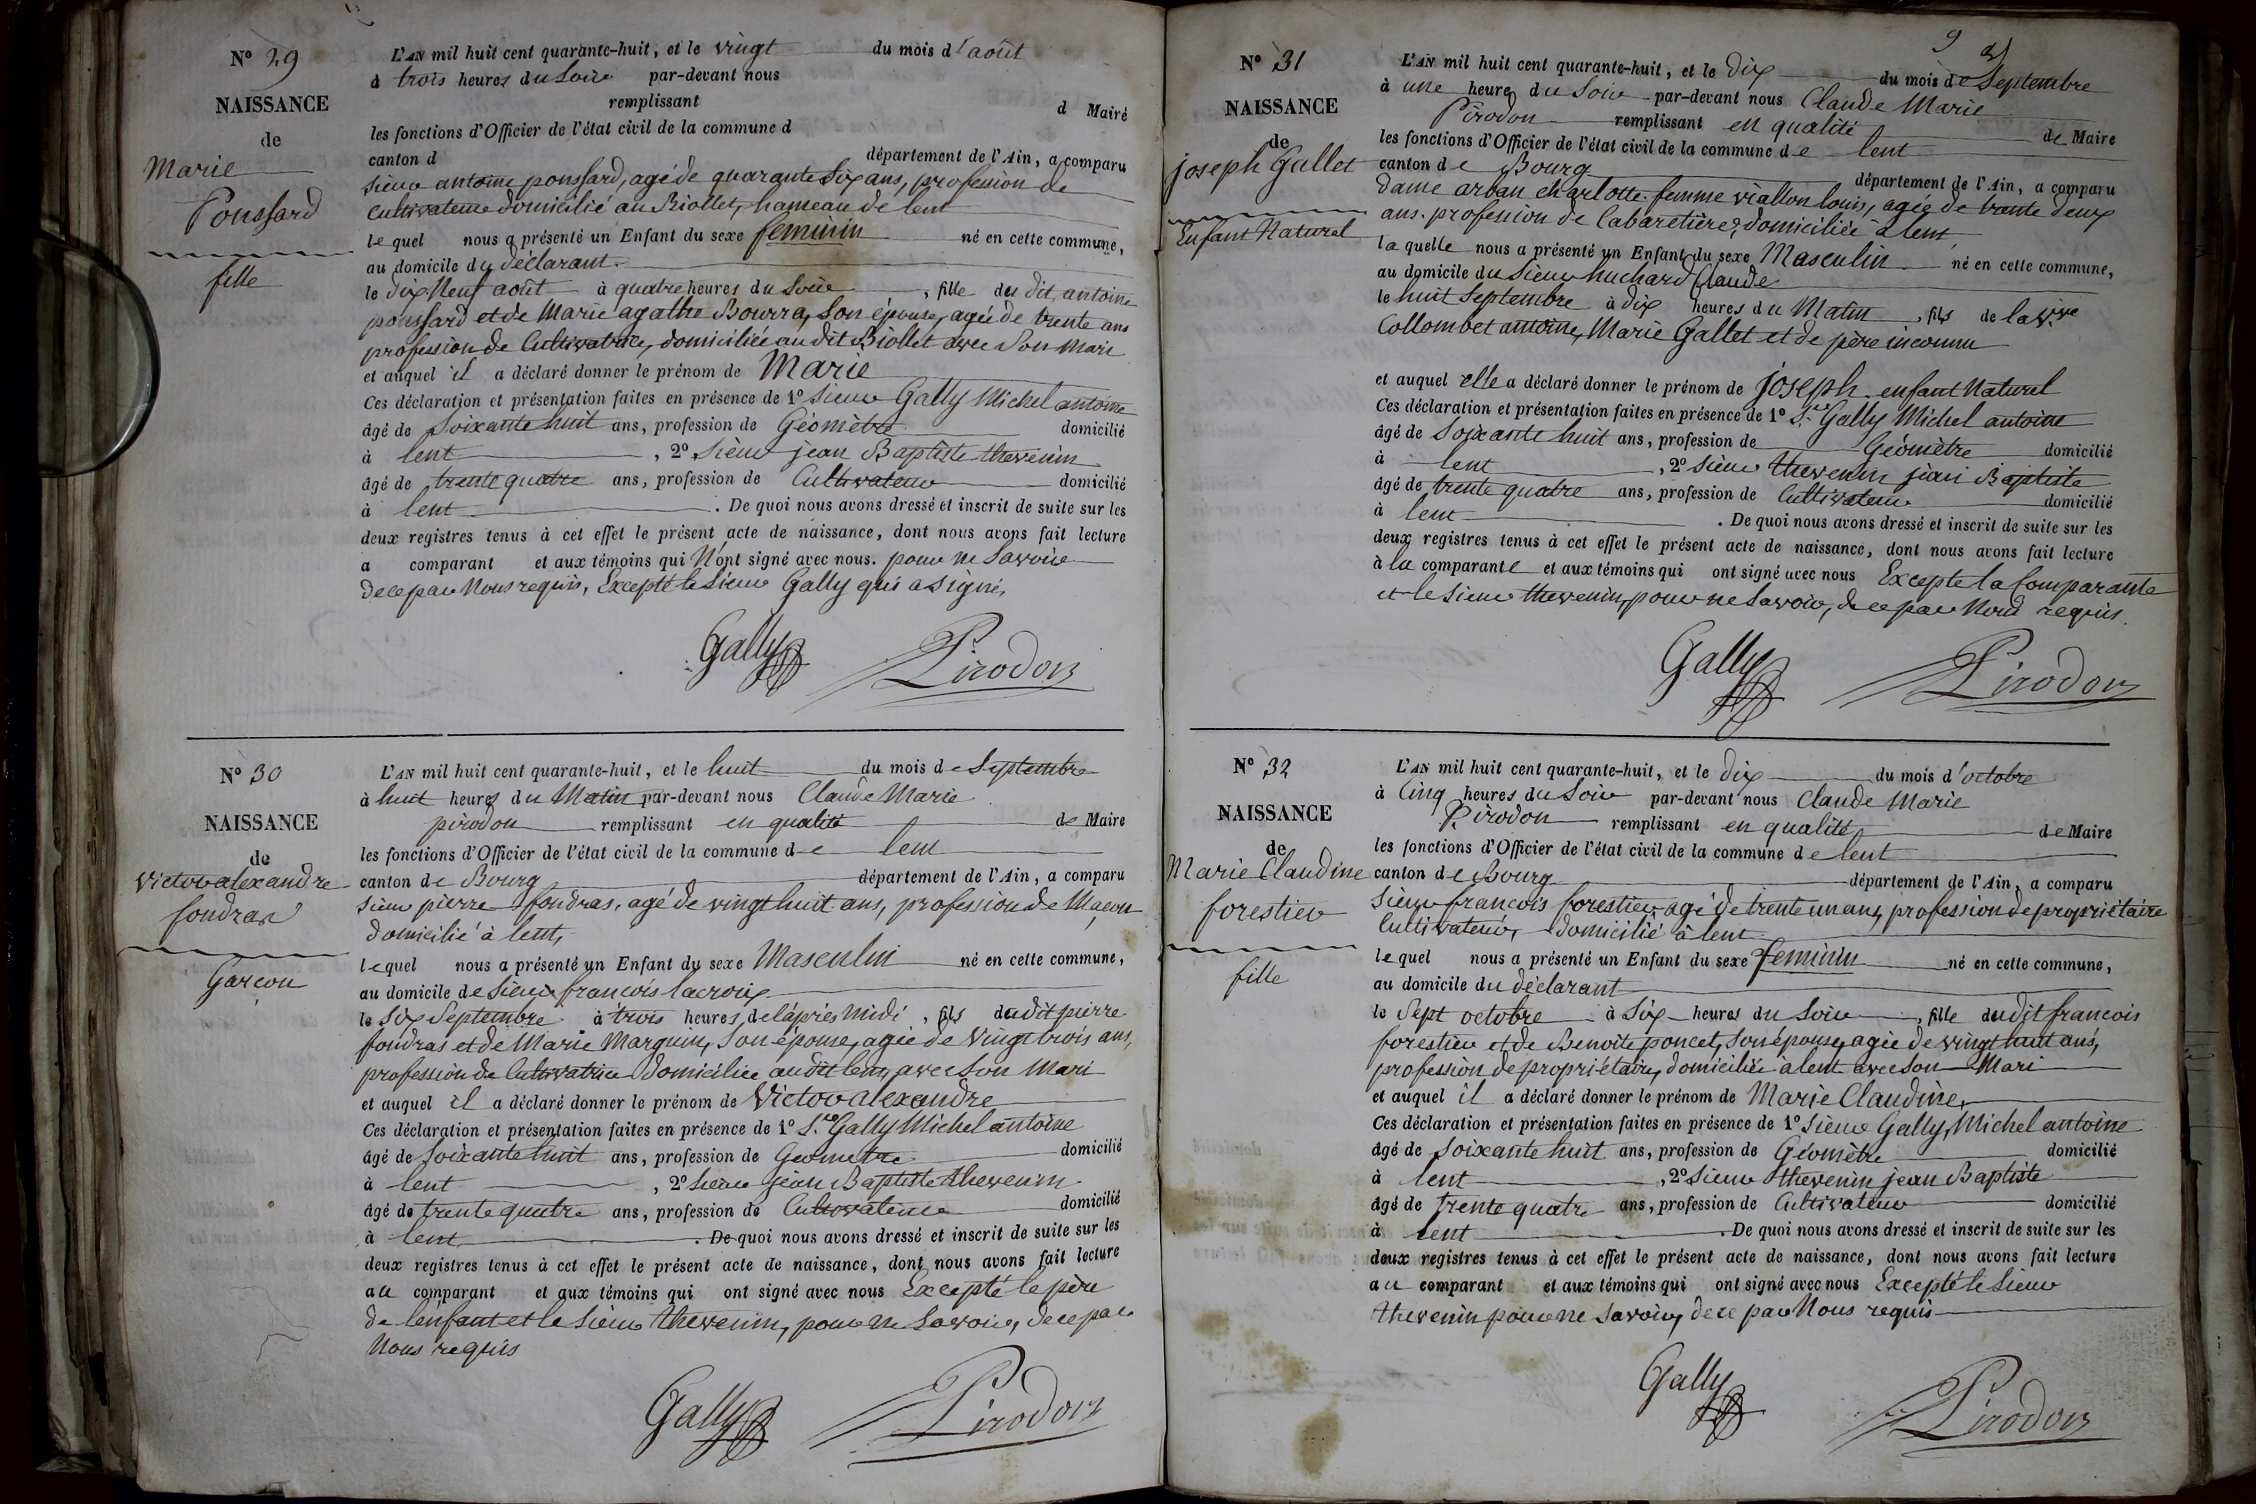 N° 29
NAISSANCE
de
Marie
Ponssard
fille
L'AN mil huit cent quarante-huit, et le vingt du mois d'août
à trois heures du Soir par-devant nous
remplissant d Maire
les fonctions d'Officier de l'état civil de la commune d
canton d département de l'Ain, a comparu
Sieur antoine ponssard, agé de quarante Six ans, profession de
Cultivateur domicilié au Biollet, hameau de lent
lequel nous a présenté un Enfant du sexe feminin né en cette commune,
au domicile du déclarant.
le dix Neuf août à quatre heures du Soir, fille du dit antoine
ponssard et de Marie agathe Bourra, Son épouse, agée de trente ans
profession de Cultivatrice, domiciliée au dit Biollet avec Son Mari
et auquel il a déclaré donner le prénom de Marie
Ces déclaration et présentation faites en présence de 1° Sieur Gally Michel antoine
âgé de Soixante huit ans, profession de Géomètre domicilié
à lent, 2° Sieur jean Baptiste thevenin
âgé de trente quatre ans, profession de Cultivateur domicilié
à lent. De quoi nous avons dressé et inscrit de suite sur les
deux registres tenus à cet effet le présent acte de naissance, dont nous avons fait lecture
a comparant et aux témoins qui N'ont signé avec nous. pour ne Savoir
de ce par Nous requis, Excepté le Sieur Gally qui a Signé,
Gally Pirodon
N° 30
NAISSANCE
de
Victor alexandre
fondras
Garçon
L'AN mil huit cent quarante-huit, et le huit du mois de Septembre
à huit heures du Matin par-devant nous Claude Marie
pirodon remplissant en qualité de Maire
les fonctions d'Officier de l'état civil de la commune de lent
canton de Bourg département de l'Ain, a comparu
Sieur pierre fondras, agé de vingt huit ans, profession de Maçon
domicilié à lent,
lequel nous a présenté un Enfant du sexe Masculin né en cette commune,
au domicile de Sieur françois lacroix
le Six Septembre à trois heures de l'après Midi, fils dudit pierre
fondras et de Marie Marguin, Son épouse, agée de Vingt trois ans,
profession de Cultivatrice domiciliée audit lent, avec Son Mari
et auquel il a déclaré donner le prénom de Victor alexandre
Ces déclaration et présentation faites en présence de 1° S.ur Gally Michel antoine
âgé de Soixante huit ans, profession de Geometre domicilié
à lent, 2° Sieur jean Baptiste thevenin
âgé de trente quatre ans, profession de Cultivateur domicilié
à lent. De quoi nous avons dressé et inscrit de suite sur les
deux registres tenus à cet effet le présent acte de naissance, dont nous avons fait lecture
au comparant et aux témoins qui ont signé avec nous Excepté le père
de l'enfant et le Sieur thevenin, pour ne Savoir, de ce par
Nous requis
Gally Pirodon
9
N° 31
NAISSANCE
de
joseph Gallet
Enfant Naturel
L'AN mil huit cent quarante-huit, et le dix du mois de Septembre
à une heures du Soir par-devant nous Claude Marie
Pirodon remplissant en qualité de Maire
les fonctions d'Officier de l'état civil de la commune de lent
canton de Bourg département de l'Ain, a comparu
dame arban charlotte femme viallon louis, agée de trente deux
ans. profession de Cabaretière, domiciliée à lent,
la quelle nous a présenté un Enfant du sexe Masculin né en cette commune,
au domicile du Sieur huchard Claude
le huit Septembre à dix heures du Matin, fils de la V.ve
Collombet antoine, Marie Gallet et de père inconnu
et auquel elle a déclaré donner le prénom de joseph enfant Naturel
Ces déclaration et présentation faites en présence de 1° S.ur Gally Michel antoine
âgé de Soixante huit ans, profession de Géomètre domicilié
à lent, 2° Sieur thevenin jean Baptiste
âgé de trente quatre ans, profession de Cultivateur domicilié
à lent. De quoi nous avons dressé et inscrit de suite sur les
deux registres tenus à cet effet le présent acte de naissance, dont nous avons fait lecture
à la comparante et aux témoins qui ont signé avec nous Excepté la Comparante
et le Sieur thevenin, pour ne Savoir, de ce par Nous requis.
Gally Pirodon
N° 32
NAISSANCE
de
Marie Claudine
forestier
fille
L'AN mil huit cent quarante-huit, et le dix du mois d'octobre
à Cinq heures du Soir par-devant nous Claude Marie
Pirodon remplissant en qualité de Maire
les fonctions d'Officier de l'état civil de la commune de lent
canton de Bourg département de l'Ain, a comparu
Sieur françois forestier, agé de trente un ans, profession de propriétaire
Cultivateur, domicilié à lent
lequel nous a présenté un Enfant du sexe feminin né en cette commune,
au domicile du déclarant
le Sept octobre à Six heures du Soir, fille dudit françois
forestier et de Benoite poncet, Son épouse, agée de vingt huit ans,
profession de propriétaire, domiciliée à lent avec Son Mari
et auquel il a déclaré donner le prénom de Marie Claudine,
Ces déclaration et présentation faites en présence de 1° Sieur Gally, Michel antoine
âgé de Soixante huit ans, profession de Géomètre domicilié
à lent, 2° Sieur thevenin jean Baptiste
âgé de trente quatre ans, profession de Cultivateur domicilié
à lent. De quoi nous avons dressé et inscrit de suite sur les
deux registres tenus à cet effet le présent acte de naissance, dont nous avons fait lecture
au comparant et aux témoins qui ont signé avec nous Excepté le Sieur
thevenin pour ne Savoir, de ce par Nous requis
Gally Pirodon